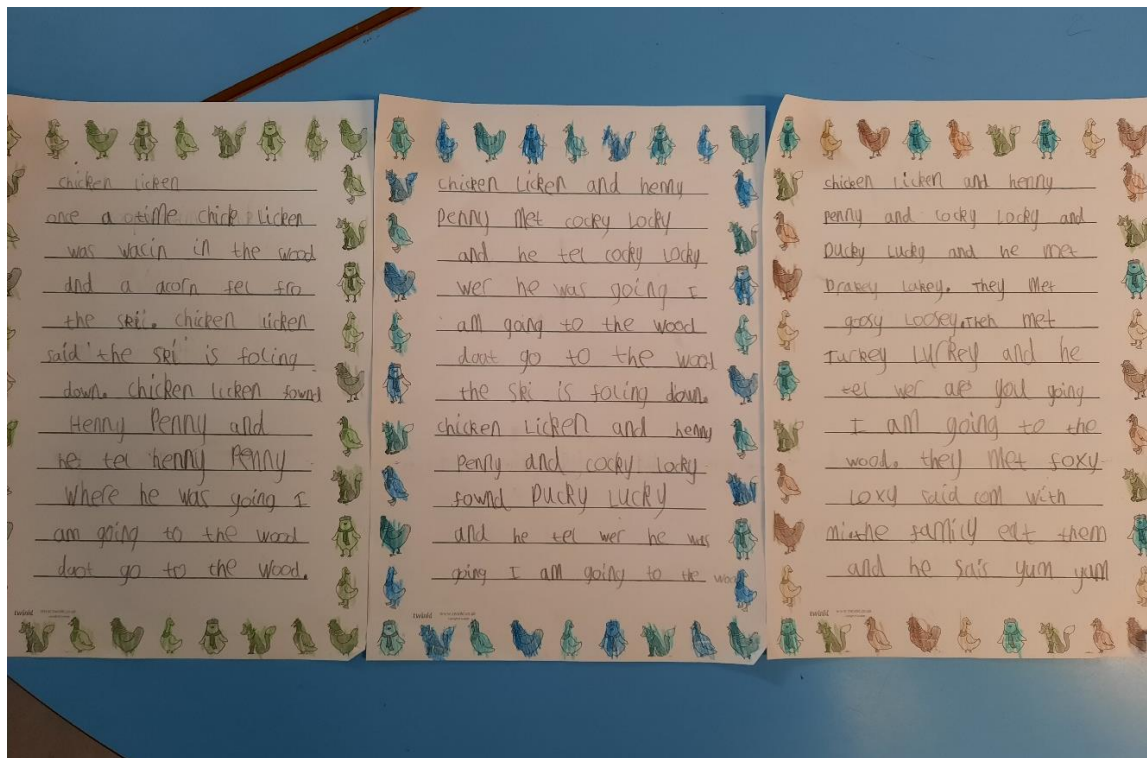 chicken licken
once a otime chick licken
was wacin in the wood
and a acorn fel fro
the skil. chicken licken
said the ski is foling
down. chicken licken fownd
Henny Penny and
he tel henny Penny
Where he was going I
am going to the wood
daot go to the wood.
twinkl
chicken Licken and henny
Penny Met cocky locky
and he tel cocky locky
wer he was going I
am going to the wood
daot go to the wood
the ski is foling down.
chicken Licken and henny
Penny and cocky locky
fownd Ducky Lucky
and he tel wer he was
going I am going to the woo
twinkl
chicken licken and henny
penny and cocky locky and
Ducky Lucky and he met
Drakey Lakey. They Met
goosy Loosey. Then met
Turkey LURkey and he
tel wer are you going
I am going to the
wood. they met foxy
Loxy said com with
mi the family eat them
and he sais yum yum
twinkl